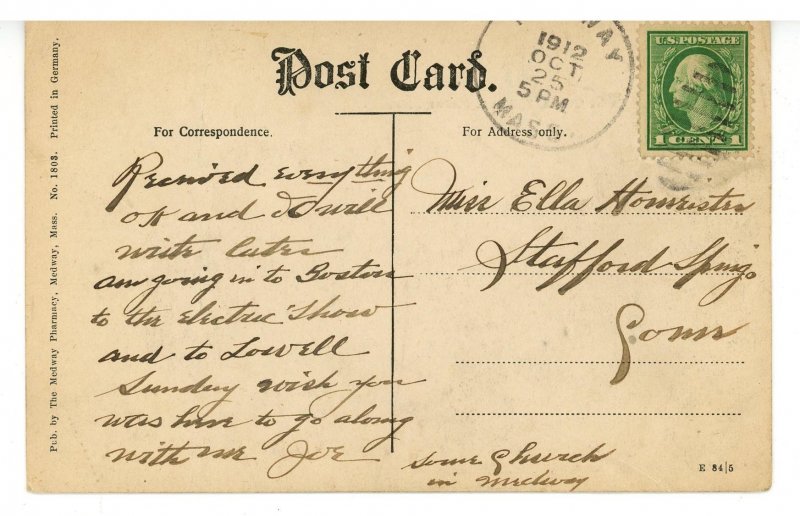 Post Card.
MEDWAY
1912
OCT
25
5 PM
MASS.
U.S. POSTAGE
1 CENT 1
For Correspondence.
For Address only.
Received everything
ok and I will
write later
am going in to Boston
to the Electric Show
and to Lowell
Sunday wish you
was here to go along
with me Joe
Miss Ella
Stafford Springs
Conn
some Church
in Medway
Pub. by The Medway Pharmacy, Medway, Mass. No. 1803. Printed in Germany.
E 84|5